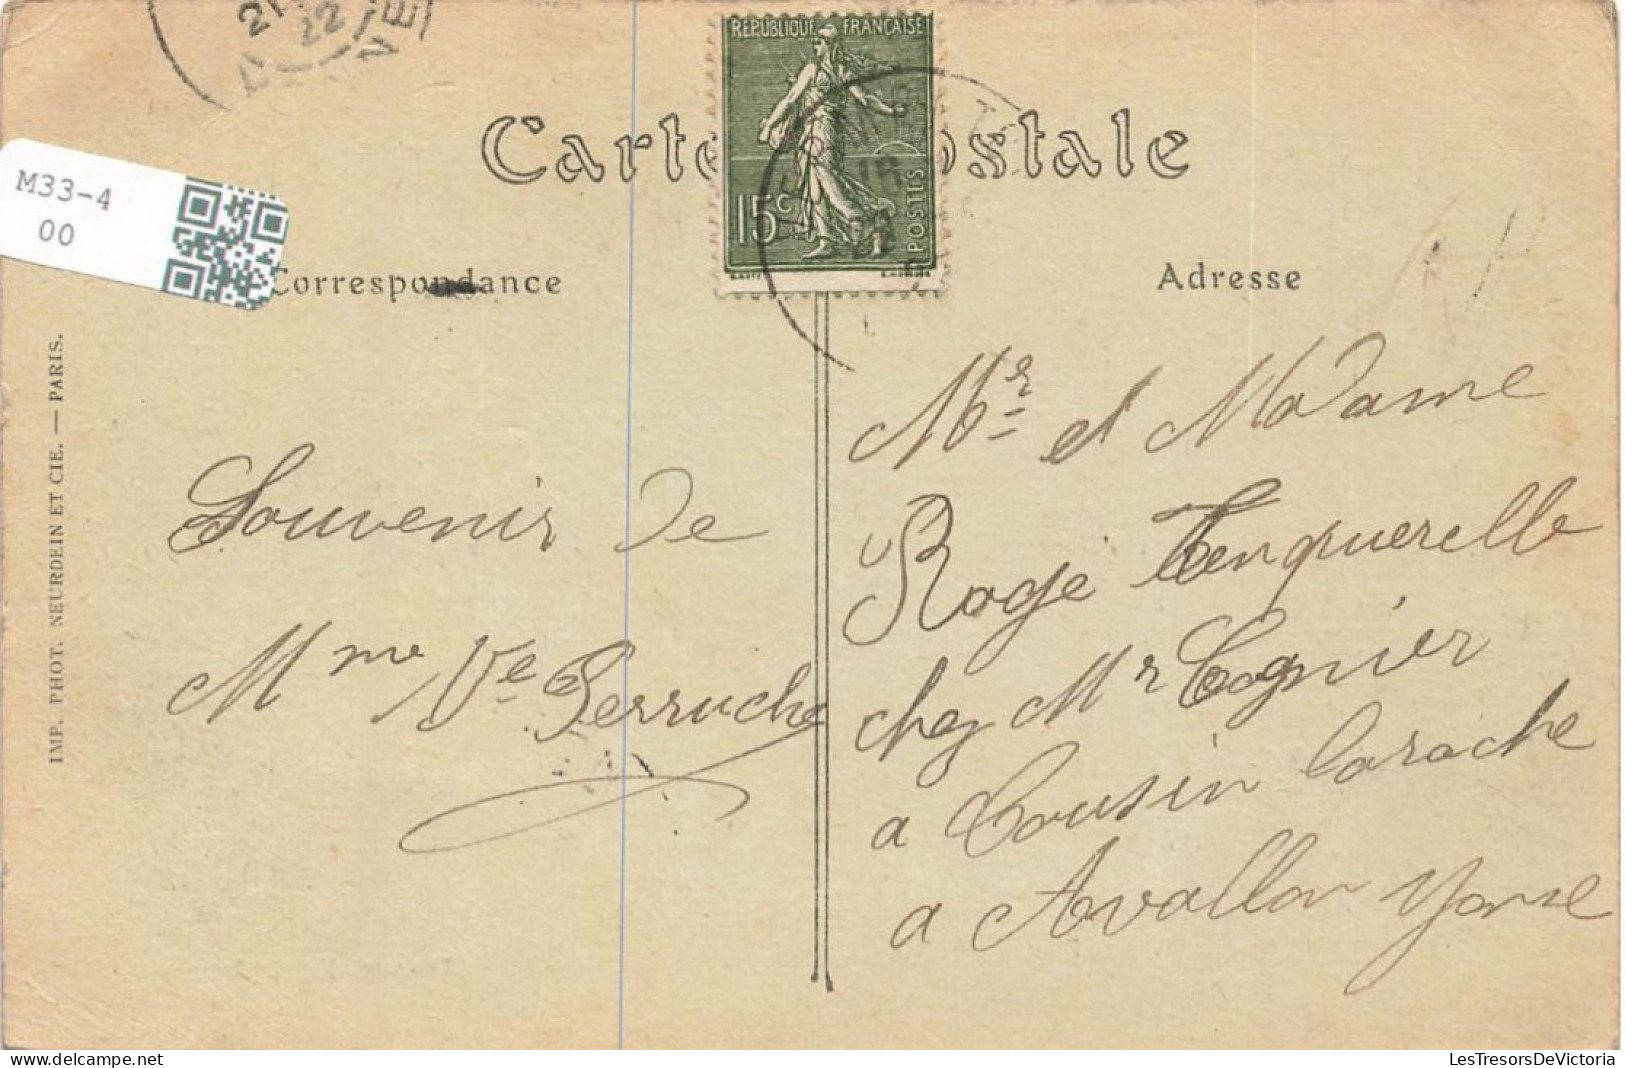 21
22
NE
REPUBLIQUE FRANÇAISE
15c
POSTES
Carte Postale
M33-4
00
Correspondance
Adresse
IMP. PHOT. NEURDEIN ET CIE. — PARIS.
Souvenir de
Mme Ve Perruche
Mr et Madame
Rogé Tenquerelle
chez Mr Cognier
a Cousin laroche
a Avallon Yonne
LesTresorsDeVictoria
LesTresorsDeVictoria